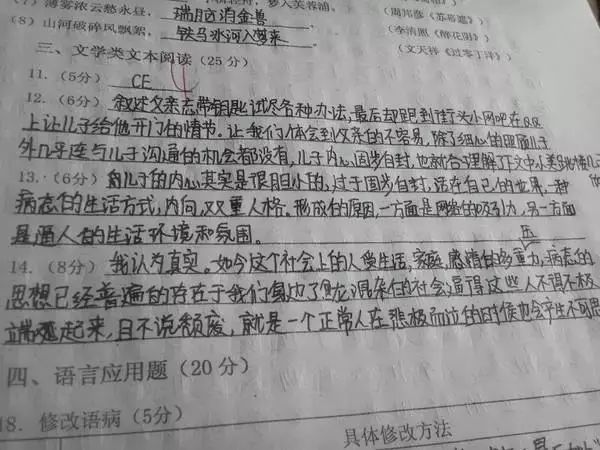 (7) 薄雾浓云愁永昼，瑞脑消金兽。
(周邦彦《苏幕遮》)
(李清照《醉花阴》)
(8) 山河破碎风飘絮，铁马冰河入梦来
(文天祥《过零丁洋》)
三、文学类文本阅读 (25分)
11. (5分) CE
12. (6分) 叙述父亲忘带钥匙试尽各种办法，最后却跑到街头小网吧在QQ
上让儿子给他开门的情节。让我们体会到父亲的不容易，除了细心的照顾儿子
外几乎连与儿子沟通的机会都没有，儿子内心固步自封，也
13. (6分) 儿子的内心其实是很胆小的，过于固步自封，活在自己的世界，一种
病态的生活方式，内向，双重人格。形成的原因，一方面是网络的吸引力，另一方面
是逼人的生活环境和氛围。
14. (8分) 我认为真实。如今这个社会上的人受生活，家庭，感情的多重压力，病态的
思想已经普遍的存在于我们身边了，混杂的社会，逼得这些人不得不极
端起来，且不说颓废，就是一个正常人在悲极而泣的时候也会产生不可思
四、语言应用题 (20分)
18. 修改语病 (5分)
具体修改方法